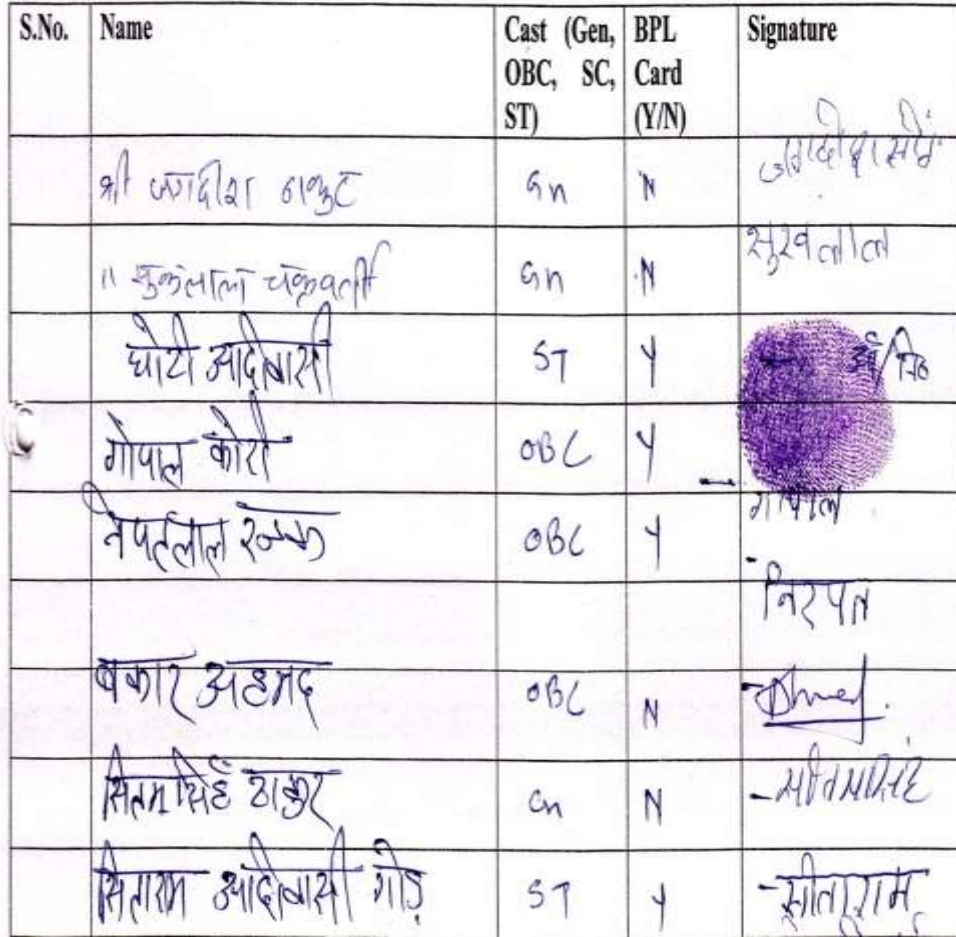 S.No. Name Cast (Gen, OBC, SC, ST) BPL Card (Y/N) Signature
श्री जगदीश ठाकुर Gn N
॥ सुकलाल चक्रवर्ती Gn N सुखलाल
घोटी आदीबासी ST Y
गोपाल कोरी OBC Y गोपाल
OBC Y निरपत
बकार अहमद OBC N
सितम सिंह ठाकुर Gn N
सिताराम आदीबासी गोड़ ST Y सीताराम